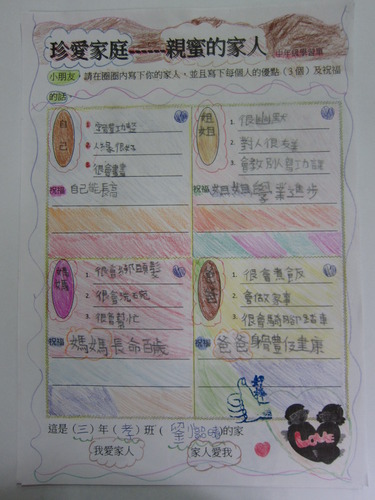 珍愛家庭------親蜜的家人 中年級學習單
小朋友,請在圈圈內寫下你的家人,並且寫下每個人的優點(3個)及祝福
的話。
自己
功課
人緣很好
很會畫畫
祝福 自己能長高
姐姐
1. 很幽默
2. 對人很好
3. 會教別人寫功課
祝福 姐姐學業進步
媽媽
1. 很會綁頭髮
2. 很會洗碗
3. 很會幫忙
祝福 媽媽長命百歲
爸爸
1. 很會煮飯
2. 會做家事
3. 很會騎腳踏車
祝福 爸爸身體健康
好棒
LOVE
這是(三)年(孝)班(劉)的家
我愛家人 家人愛我